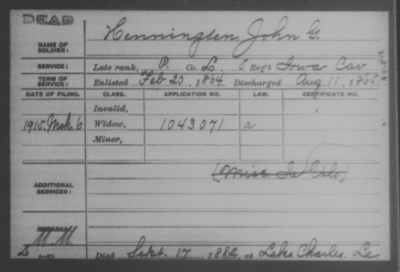 DEAD
NAME OF SOLDIER: Henningsen, John G.
SERVICE: Late rank, P. Co. L, 8 Reg't Iowa Cav
TERM OF SERVICE: Enlisted Feb 23, 1864 Discharged Aug 11, 1865
DATE OF FILING. CLASS. APPLICATION NO. LAW. CERTIFICATE NO.
Invalid,
1915, Mch 6 Widow, 1043071 a
Minor,
ADDITIONAL SERVICES:
REMARKS:
M.M.
Died Sept. 17, 1882, at Lake Charles, La